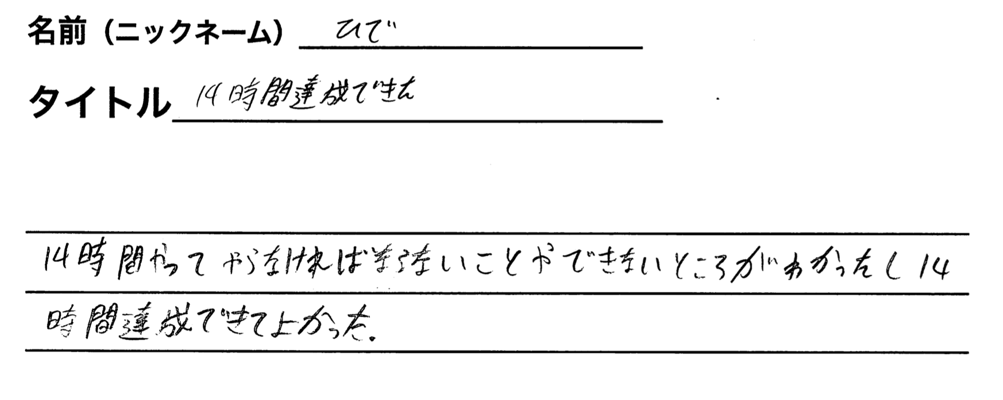 名前（ニックネーム） ひで
タイトル 14時間達成できた
14時間やってやらなければならないことやできないところがわかったし14
時間達成できてよかった.